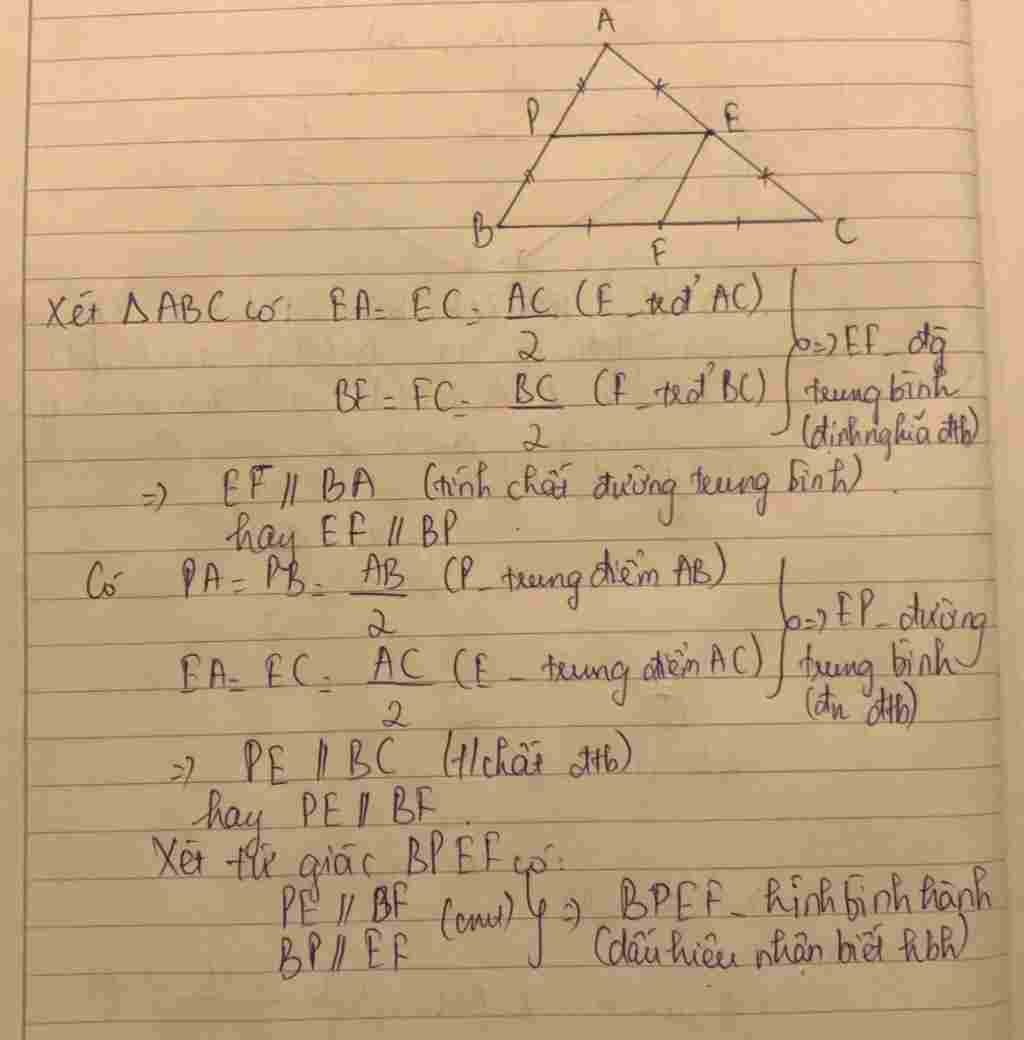 A
P
E
B
F
C
Xét ΔABC có: EA = EC = AC/2 (E_tđ AC)
BF = FC = BC/2 (F_tđ BC)
=> EF_đg
trung bình
(định nghĩa đtb)
=> EF // BA (tính chất đường trung bình).
hay EF // BP
Có PA = PB = AB/2 (P_trung điểm AB)
EA = EC = AC/2 (E_trung điểm AC)
=> EP_đường
trung bình
(đn đtb)
=> PE // BC (t/chất đtb)
hay PE // BF.
Xét tứ giác BPEF có:
PE // BF
BP // EF
(cmt) => BPEF_hình bình hành
(dấu hiệu nhận biết hbh)